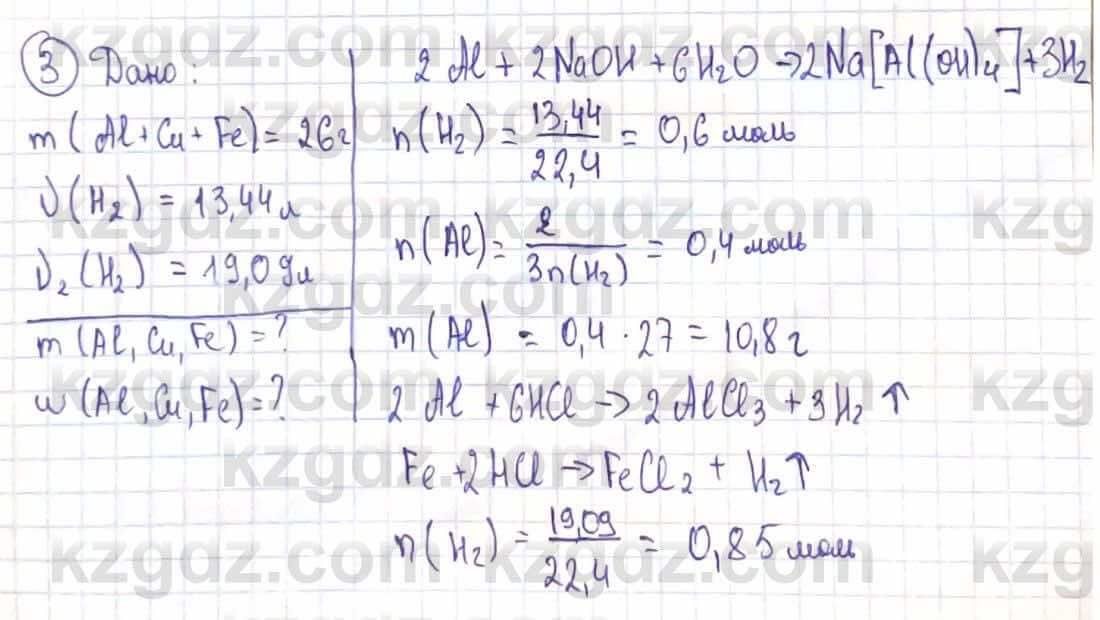 3 Дано:
m(Al+Cu+Fe)=26г
V(H₂) = 13,44л
V₂(H₂) = 19,09л
m(Al, Cu, Fe)=?
w(Al, Cu, Fe)=?
2Al + 2NaOH + 6H₂O → 2Na[Al(OH)₄] + 3H₂
n(H₂) = 13,44/22,4 = 0,6 моль
n(Al) = 2/3n(H₂) = 0,4 моль
m(Al) = 0,4 · 27 = 10,8 г
2Al + 6HCl → 2AlCl₃ + 3H₂↑
Fe + 2HCl → FeCl₂ + H₂↑
n(H₂) = 19,09/22,4 = 0,85 моль
kzgdz.com kzgdz.com kzgdz.com
kzgdz.com kzgdz.com kzgdz.com
kzgdz.com kzgdz.com kzgdz.com
kzgdz.com